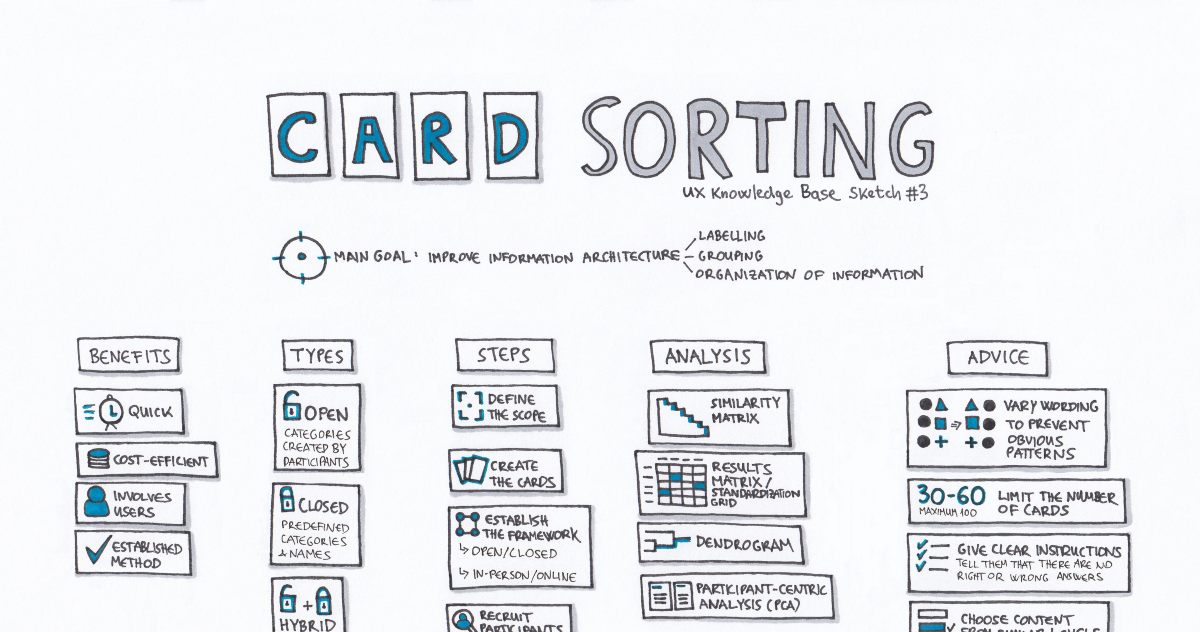 CARD SORTING
UX Knowledge Base Sketch #3
MAIN GOAL: IMPROVE INFORMATION ARCHITECTURE
LABELLING
GROUPING
ORGANIZATION OF INFORMATION
BENEFITS
QUICK
COST-EFFICIENT
INVOLVES
USERS
ESTABLISHED
METHOD
TYPES
OPEN
CATEGORIES
CREATED BY
PARTICIPANTS
CLOSED
PREDEFINED
CATEGORIES
& NAMES
+
HYBRID
STEPS
DEFINE
THE SCOPE
CREATE
THE CARDS
ESTABLISH
THE FRAMEWORK
↳ OPEN/CLOSED
↳ IN-PERSON/ONLINE
RECRUIT
PARTICIPANTS
ANALYSIS
SIMILARITY
MATRIX
RESULTS
MATRIX/
STANDARDIZATION
GRID
DENDROGRAM
PARTICIPANT-CENTRIC
ANALYSIS (PCA)
ADVICE
VARY WORDING
TO PREVENT
OBVIOUS
PATTERNS
30-60 LIMIT THE NUMBER
MAXIMUM 100 OF CARDS
GIVE CLEAR INSTRUCTIONS
TELL THEM THAT THERE ARE NO
RIGHT OR WRONG ANSWERS
CHOOSE CONTENT
FROM SIMILAR LEVELS